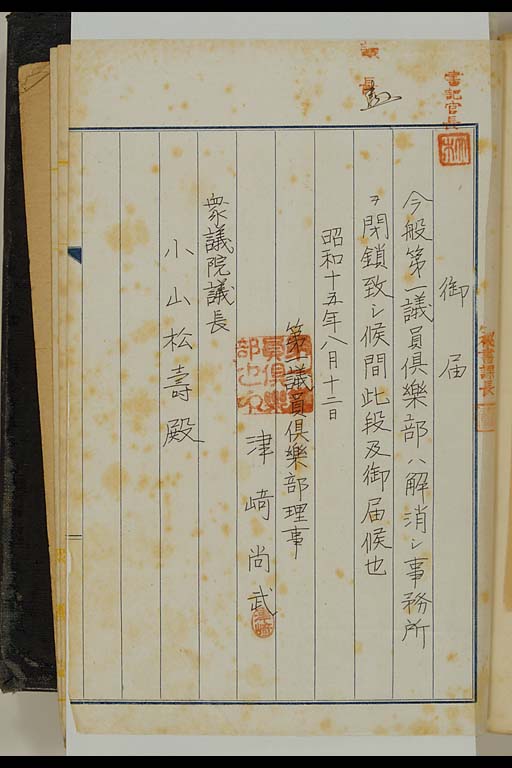 書記官長
議長
秘書課長
御届
今般第一議員倶樂部ハ解消シ事務所
ヲ閉鎖致シ候間此段及御届候也
昭和十五年八月十二日
第一議員倶樂部理事
津崎尚武
衆議院議長
小山松壽殿